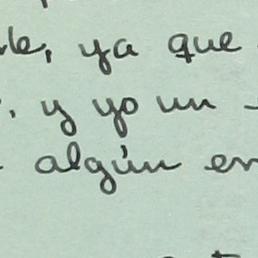 le, ya que
. y yo un
algún en